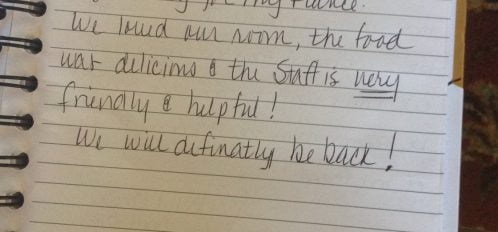 my fiance.
We loved our room, the food
was delicious & the Staff is very
friendly & helpful!
We will definatly be back!